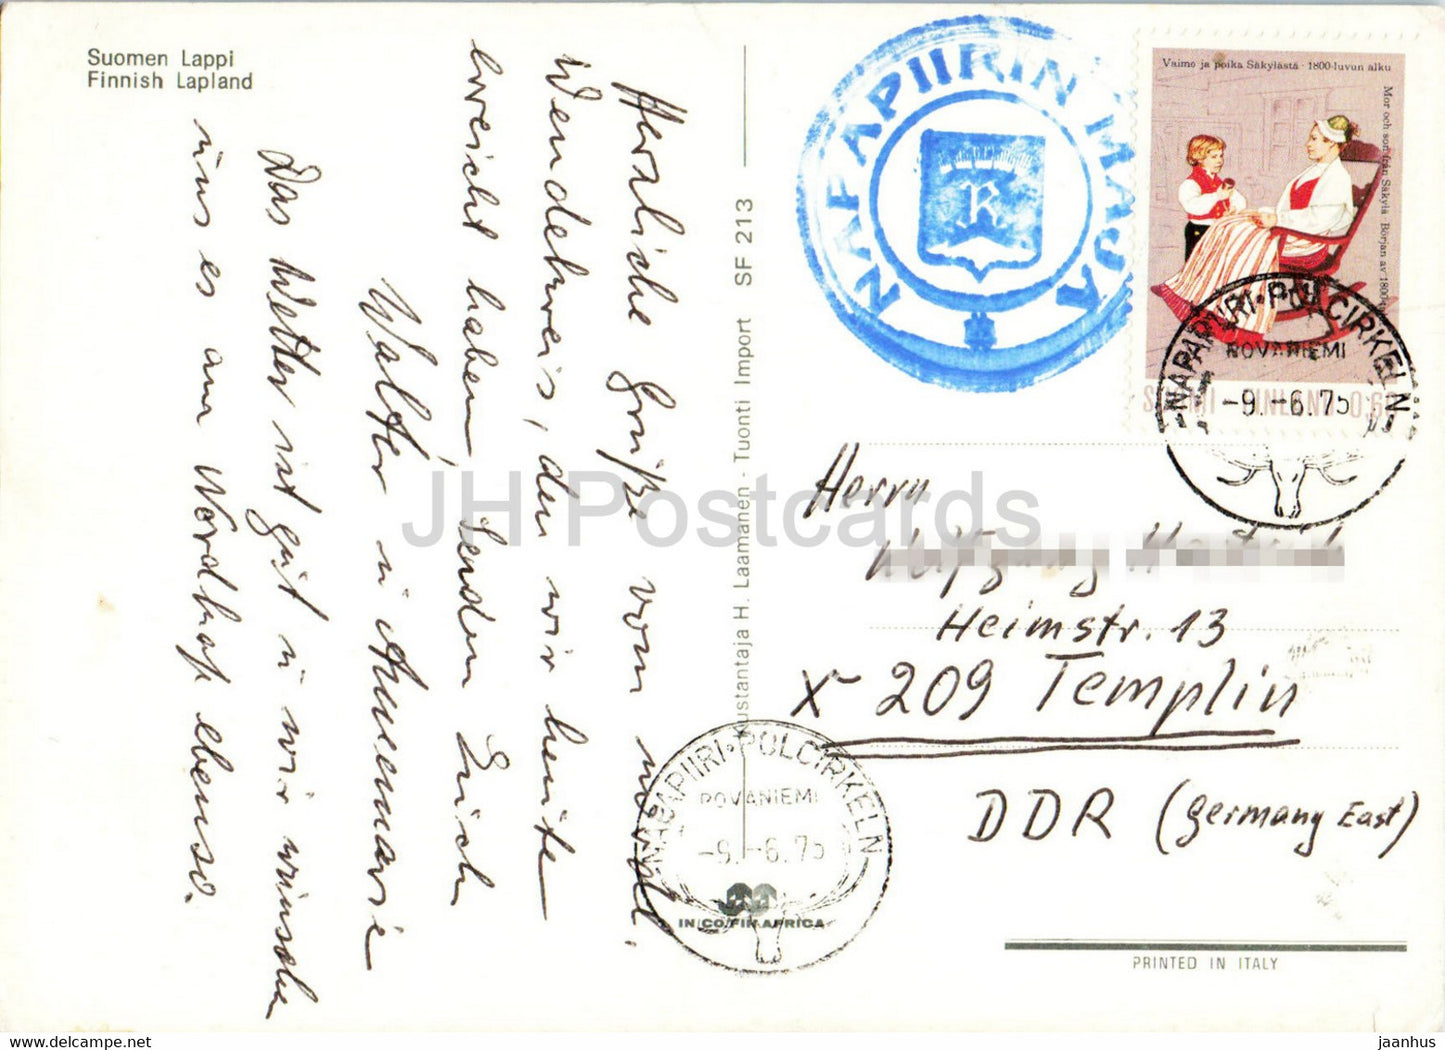 Suomen Lappi
Finnish Lapland
Herzliche Grüße vom nördl.
Wendekreis, den wir heute
erreicht haben, senden Euch
Walter u. Annemarie
Das Wetter ist gut u. wir wünschen
uns es am Nordkap ebenso.
Kustantaja H. Laamanen - Tuonti Import SF 213
NAPAPIIRIN MAJA
R
Vaimo ja poika Säkylästä · 1800-luvun alku
Mor och son från Säkylä · Början av 1800-t
SUOMI FINLAND 0,60
NAPAPIIRI·POLCIRKELN
ROVANIEMI
-9.-6.75
Herrn
Heimstr. 13
X 209 Templin
DDR (Germany East)
NAPAPIIRI·POLCIRKELN
ROVANIEMI
-9.-6.75
IN/CO/FIN AFRICA
PRINTED IN ITALY
JH Postcards
www.delcampe.net
jaanhus